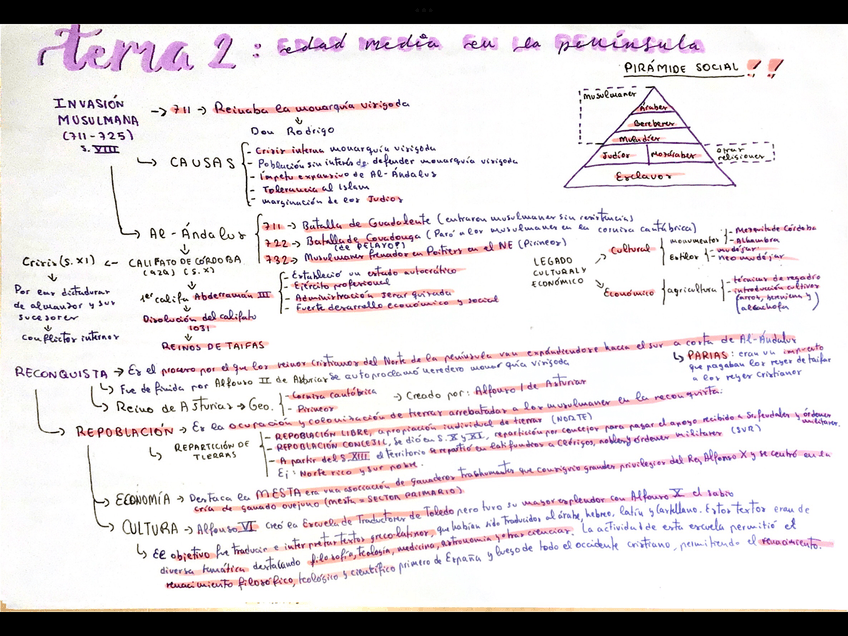 tema 2: edad media en la península
PIRÁMIDE SOCIAL !!
musulmanes
Árabes
Bereberes
Muladíes
Judíos
Mozárabes
otras religiones
Esclavos
INVASIÓN MUSULMANA (711-725) S. VIII
→ 711 → Reinaba la monarquía visigoda
Don Rodrigo
CAUSAS
- Crisis interna monarquía visigoda
- Población sin interés de defender monarquía visigoda
- Ímpetu expansivo de Al-Ándalus
- Tolerancia al Islam
- marginación de los Judíos
Al-Ándalus
711 → Batalla de Guadalete (entraron musulmanes sin resistencias)
722 → Batalla de Covadonga (Paró a los musulmanes en la cornisa cantábrica)
(de PELAYO)
732 → Musulmanes frenados en Poitiers en el NE (Pirineos)
Crisis (S. XI) ← CALIFATO DE CÓRDOBA (929) (S. X)
Por ser dictaduras de almanzor y sus sucesores
Conflictos internos
1er califa Abderramán III
- Estableció un estado autocrático
- Ejército profesional
- Administración jerarquizada
- Fuerte desarrollo económico y social
Disolución del califato 1031
REINOS DE TAIFAS
LEGADO CULTURAL Y ECONÓMICO
Cultural
monumentos
- Mezquita de Córdoba
- Alhambra
Estilos
- mudéjar
- neo mudéjar
Económico
agricultura
- técnicas de regadío
- introducción cultivos (arroz, berenjena y alcachofa)
RECONQUISTA → Es el proceso por el que los reinos cristianos del Norte de la península van expandiéndose hacia el sur a costa de Al-Ándalus
PARIAS: eran un impuesto que pagaban los reyes de taifas a los reyes cristianos
Fue definida por Alfonso II de Asturias se autoproclamó heredero monarquía visigoda
Reino de Asturias → Geo.
- Cornisa cantábrica
- Pirineos
→ Creado por: Alfonso I de Asturias
REPOBLACIÓN → Es la ocupación y colonización de tierras arrebatadas a los musulmanes en la reconquista.
REPARTICIÓN DE TIERRAS
- REPOBLACIÓN LIBRE, apropiación individual de tierras (NORTE)
- REPOBLACIÓN CONCEJIL, se dió en S. X y XI, repartición por concejos para pagar el apoyo recibido a Sr. feudales y órdenes militares.
- A partir del S. XIII el territorio se repartió en latifundios a Clérigos, nobles y órdenes militares (SUR)
Ej: Norte rico y sur pobre.
ECONOMÍA → Destaca la MESTA era una asociación de ganaderos trashumantes que consiguió grandes privilegios del Rey Alfonso X y se centró en la
cría de ganado ovejuno (mesta = SECTOR PRIMARIO)
CULTURA → Alfonso VI creó la Escuela de Traductores de Toledo pero tuvo su mayor esplendor con Alfonso X el sabio
El objetivo fue traducir e interpretar textos greco latinos, que habían sido traducidos al árabe, hebreo, latín y castellano. Estos textos eran de
diversa temática destacando filosofía, teología, medicina, astronomía y otras ciencias. La actividad de esta escuela permitió el
renacimiento filosófico, teológico y científico primero de España y luego de todo el occidente cristiano, permitiendo el renacimiento.